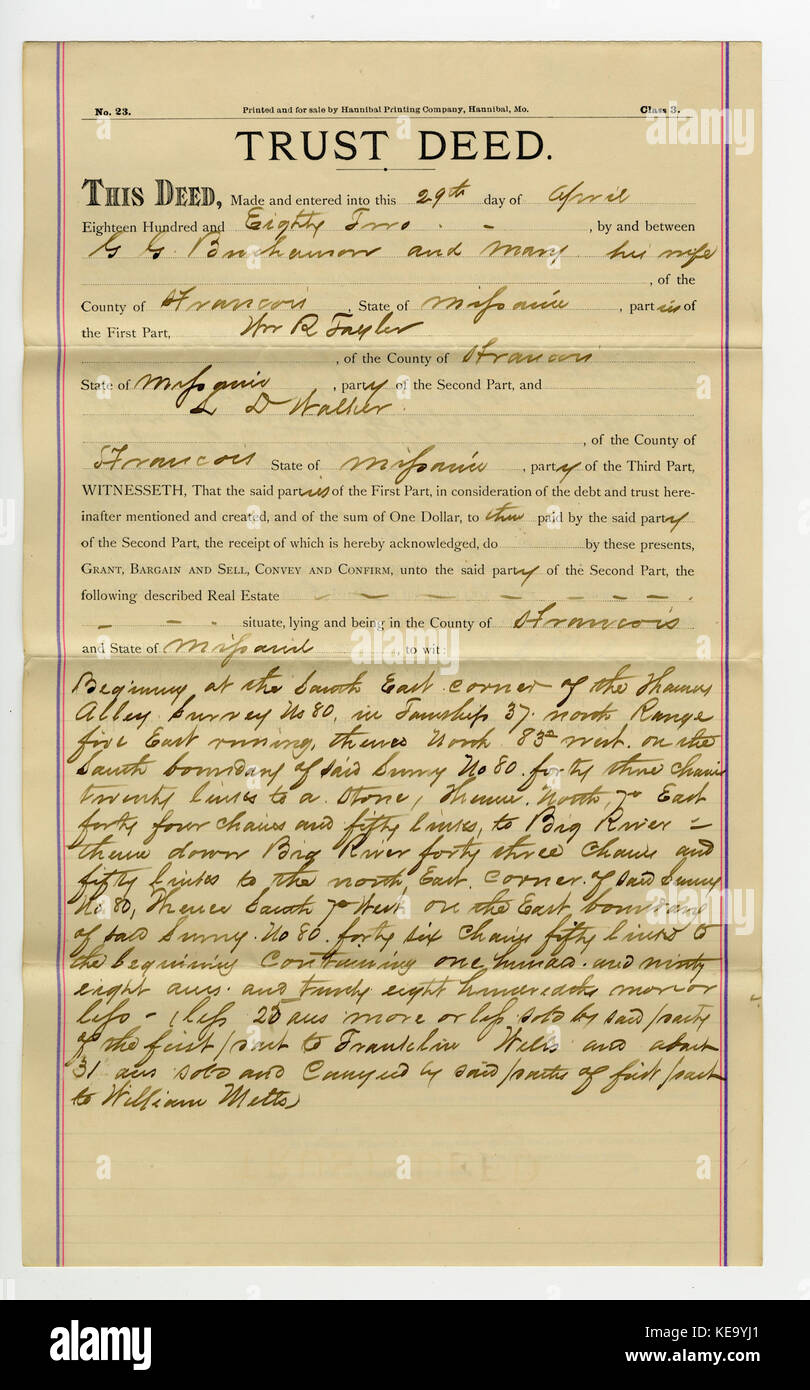 No. 23. Printed and for sale by Hannibal Printing Company, Hannibal, Mo. Class 3.
TRUST DEED.
THIS DEED, Made and entered into this 29th day of April
Eighteen Hundred and Eighty Two - - , by and between
G G. Buchanan and Mary his wife
, of the
County of St Francois , State of Missouri , parties of
the First Part, Wm R Taylor
, of the County of St Francois
State of Missouri , party of the Second Part, and
L D Walker
, of the County of
St Francois State of Missouri , party of the Third Part,
WITNESSETH, That the said parties of the First Part, in consideration of the debt and trust here-
inafter mentioned and created, and of the sum of One Dollar, to them paid by the said party
of the Second Part, the receipt of which is hereby acknowledged, do by these presents,
GRANT, BARGAIN AND SELL, CONVEY AND CONFIRM, unto the said party of the Second Part, the
following described Real Estate
situate, lying and being in the County of St Francois
and State of Missouri , to wit:
Beginning at the South East corner of the Thomas
Alley Survey No 80, in Township 37 north Range
five East running, thence North 83 west on the
South boundary of said Survey No 80 forty three chains
twenty links to a Stone, Thence North, 7º East
forty four chains and fifty links, to Big River –
thence down Big River forty three chains and
fifty links to the north East corner of said Survey
No 80, Thence South 7º West on the East boundary
of said Survey No 80 forty six chains fifty links to
the beginning Containing one hundred and ninety
eight acres and twenty eight hundredths more or
less – (less 25 acres more or less sold by said party
of the first part to Franklin Wells and about
31 acres sold and Conveyed by said parties of first part
to William Metts)
alamy
a
Image ID: KE9YJ1
www.alamy.com